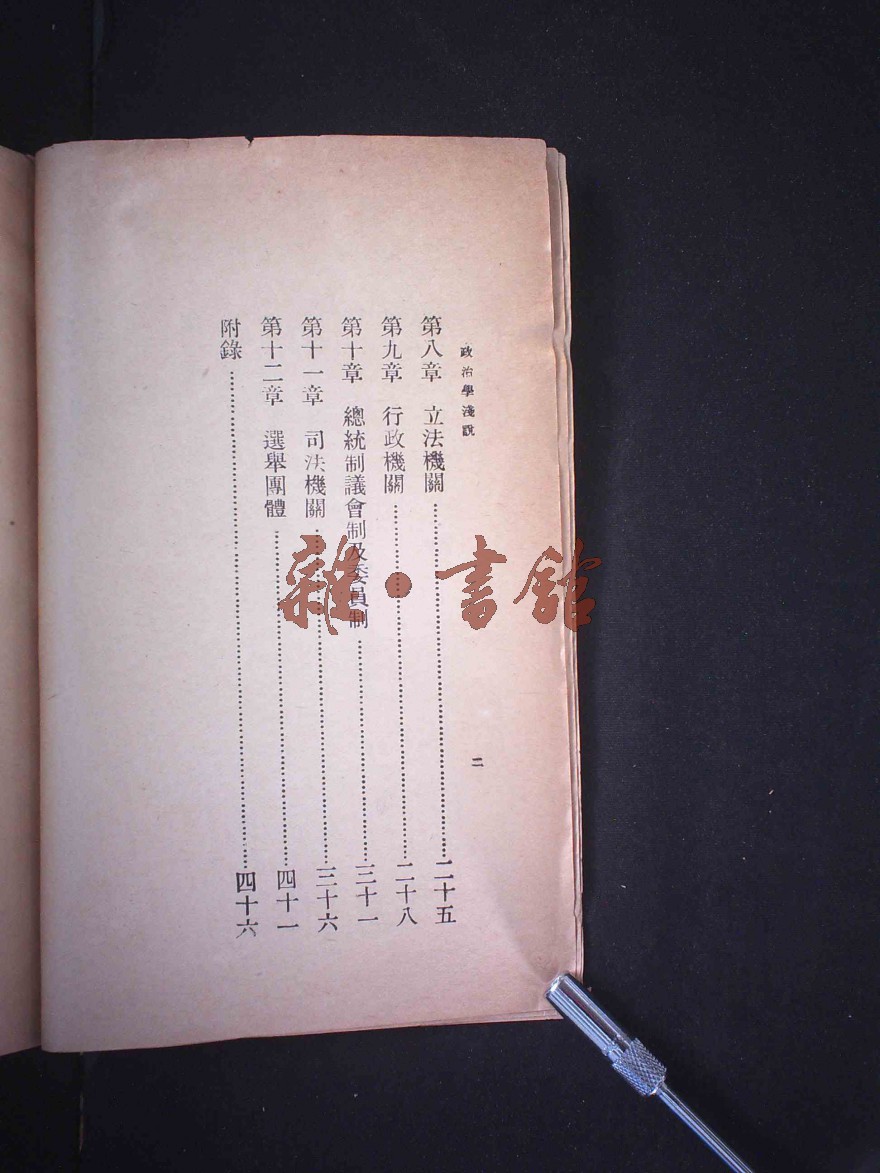 政治學淺説
二
第八章　立法機關……二十五
第九章　行政機關……二十八
第十章　總統制議會制及委員制……三十一
第十一章　司法機關……三十六
第十二章　選舉團體……四十一
附錄……四十六
雜·書館